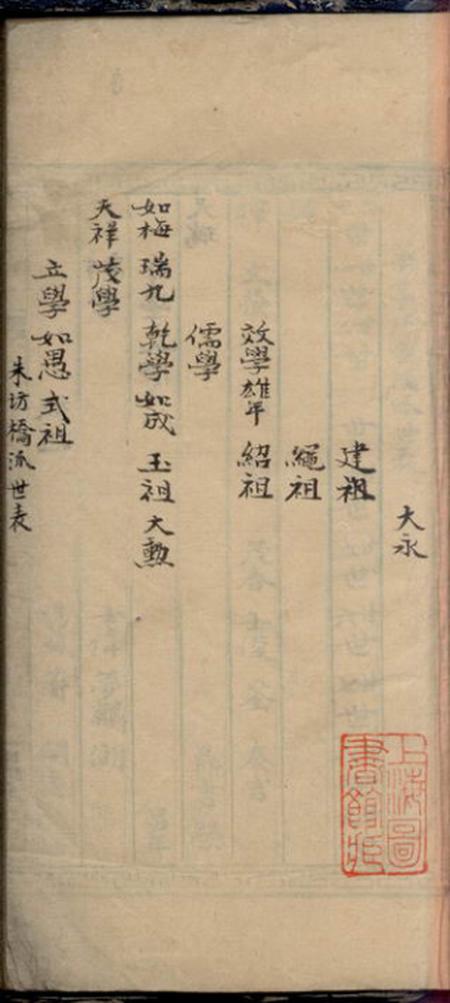 大永
建祖
繩祖
效學 雄年 紹祖
儒學
如梅 瑞九 乾學 如成 玉祖 大勳
天祥 茂學
立學 如愚 式祖
朱坊橋派世表
上海圖書館藏